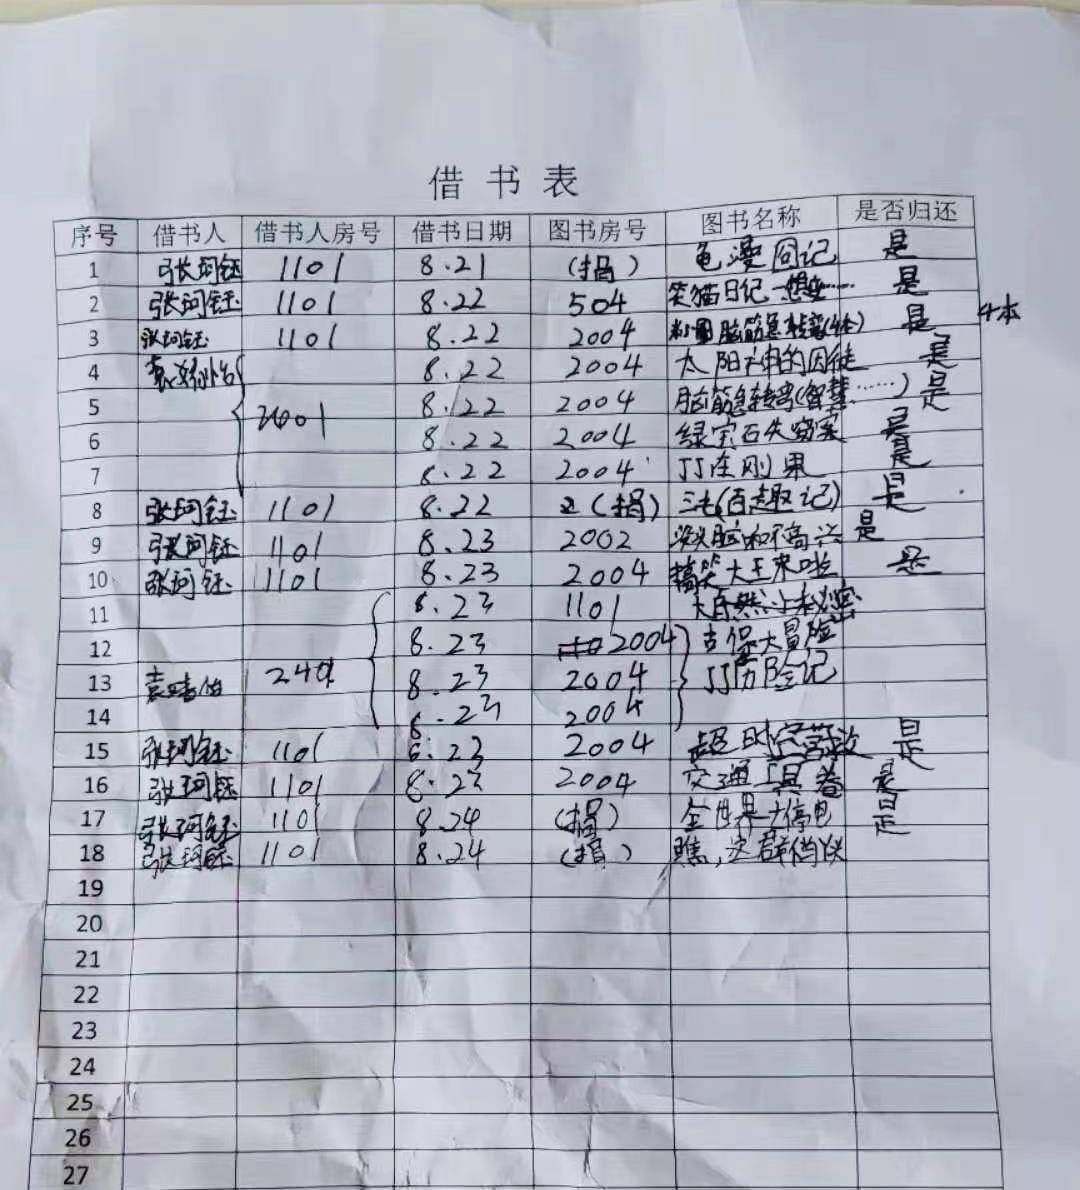 借书表
序号 借书人 借书人房号 借书日期 图书房号 图书名称 是否归还
1 张珂钰 1101 8.21 (捐) 龟漫回记 是
2 张珂钰 1101 8.22 504 笑猫日记 …… 是
3 张珂钰 1101 8.22 2004 脑筋急转弯(4本) 是 4本
4 8.22 2004 太阳神的囚徒 是
5 2401 8.22 2004 脑筋急转弯(智慧……) 是
6 8.22 2004 绿宝石失窃案 是
7 8.22 2004 JJ在刚果 是
8 张珂钰 1101 8.22 (捐) 三毛(百趣记) 是
9 张珂钰 1101 8.23 2002 没头脑和不高兴 是
10 张珂钰 1101 8.23 2004 搞笑大王来啦 是
11 8.23 1101 大自然
12 8.23 2004 吉保大冒险
13 袁 2401 8.23 2004 JJ历险记
14 8.23 2004
15 张珂钰 1101 8.23 2004 超时空营救 是
16 张珂钰 1101 8.23 2004 交通工具卷 是
17 张珂钰 1101 8.24 (捐) 全世界大停电 是
18 张珂钰 1101 8.24 (捐) 瞧,这群俏伙
19
20
21
22
23
24
25
26
27